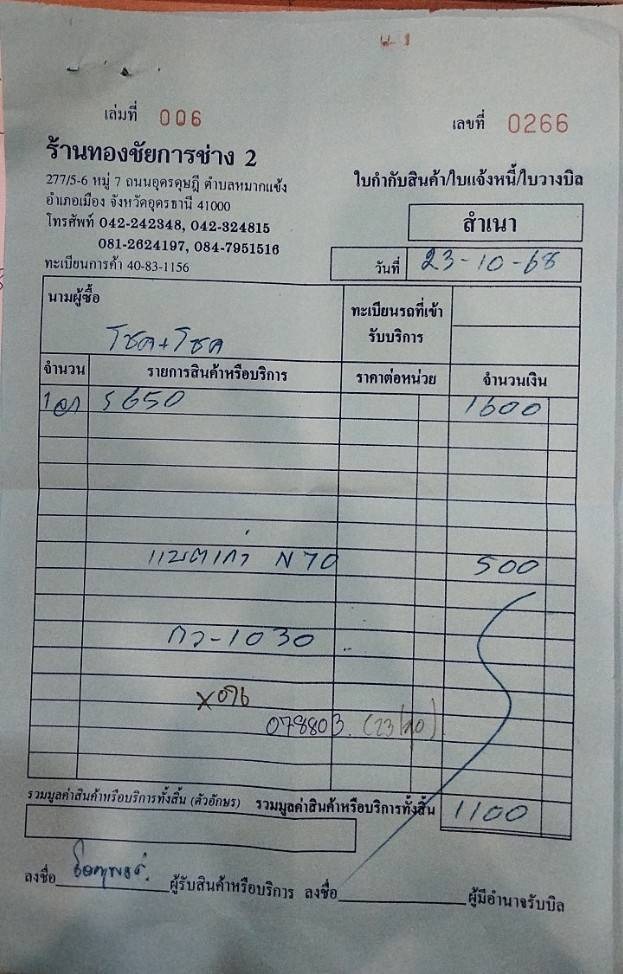 เล่มที่ 006
เลขที่ 0266
ร้านทองชัยการช่าง 2
277/5-6 หมู่ 7 ถนนอุดรดุษฎี ตำบลหมากแข้ง
อำเภอเมือง จังหวัดอุดรธานี 41000
โทรศัพท์ 042-242348, 042-324815
081-2624197, 084-7951516
ทะเบียนการค้า 40-83-1156
ใบกำกับสินค้า/ใบแจ้งหนี้/ใบวางบิล
สำเนา
วันที่ 23-10-68
นามผู้ซื้อ
โชค+โชค
ทะเบียนรถที่เข้า
รับบริการ
จำนวน รายการสินค้าหรือบริการ ราคาต่อหน่วย จำนวนเงิน
1 S650 1600
แบตเก่า N70 500
กว-1030
078803. (23/10)
รวมมูลค่าสินค้าหรือบริการทั้งสิ้น (ตัวอักษร) รวมมูลค่าสินค้าหรือบริการทั้งสิ้น 1100
ลงชื่อ ผู้รับสินค้าหรือบริการ ลงชื่อ ผู้มีอำนาจรับบิล